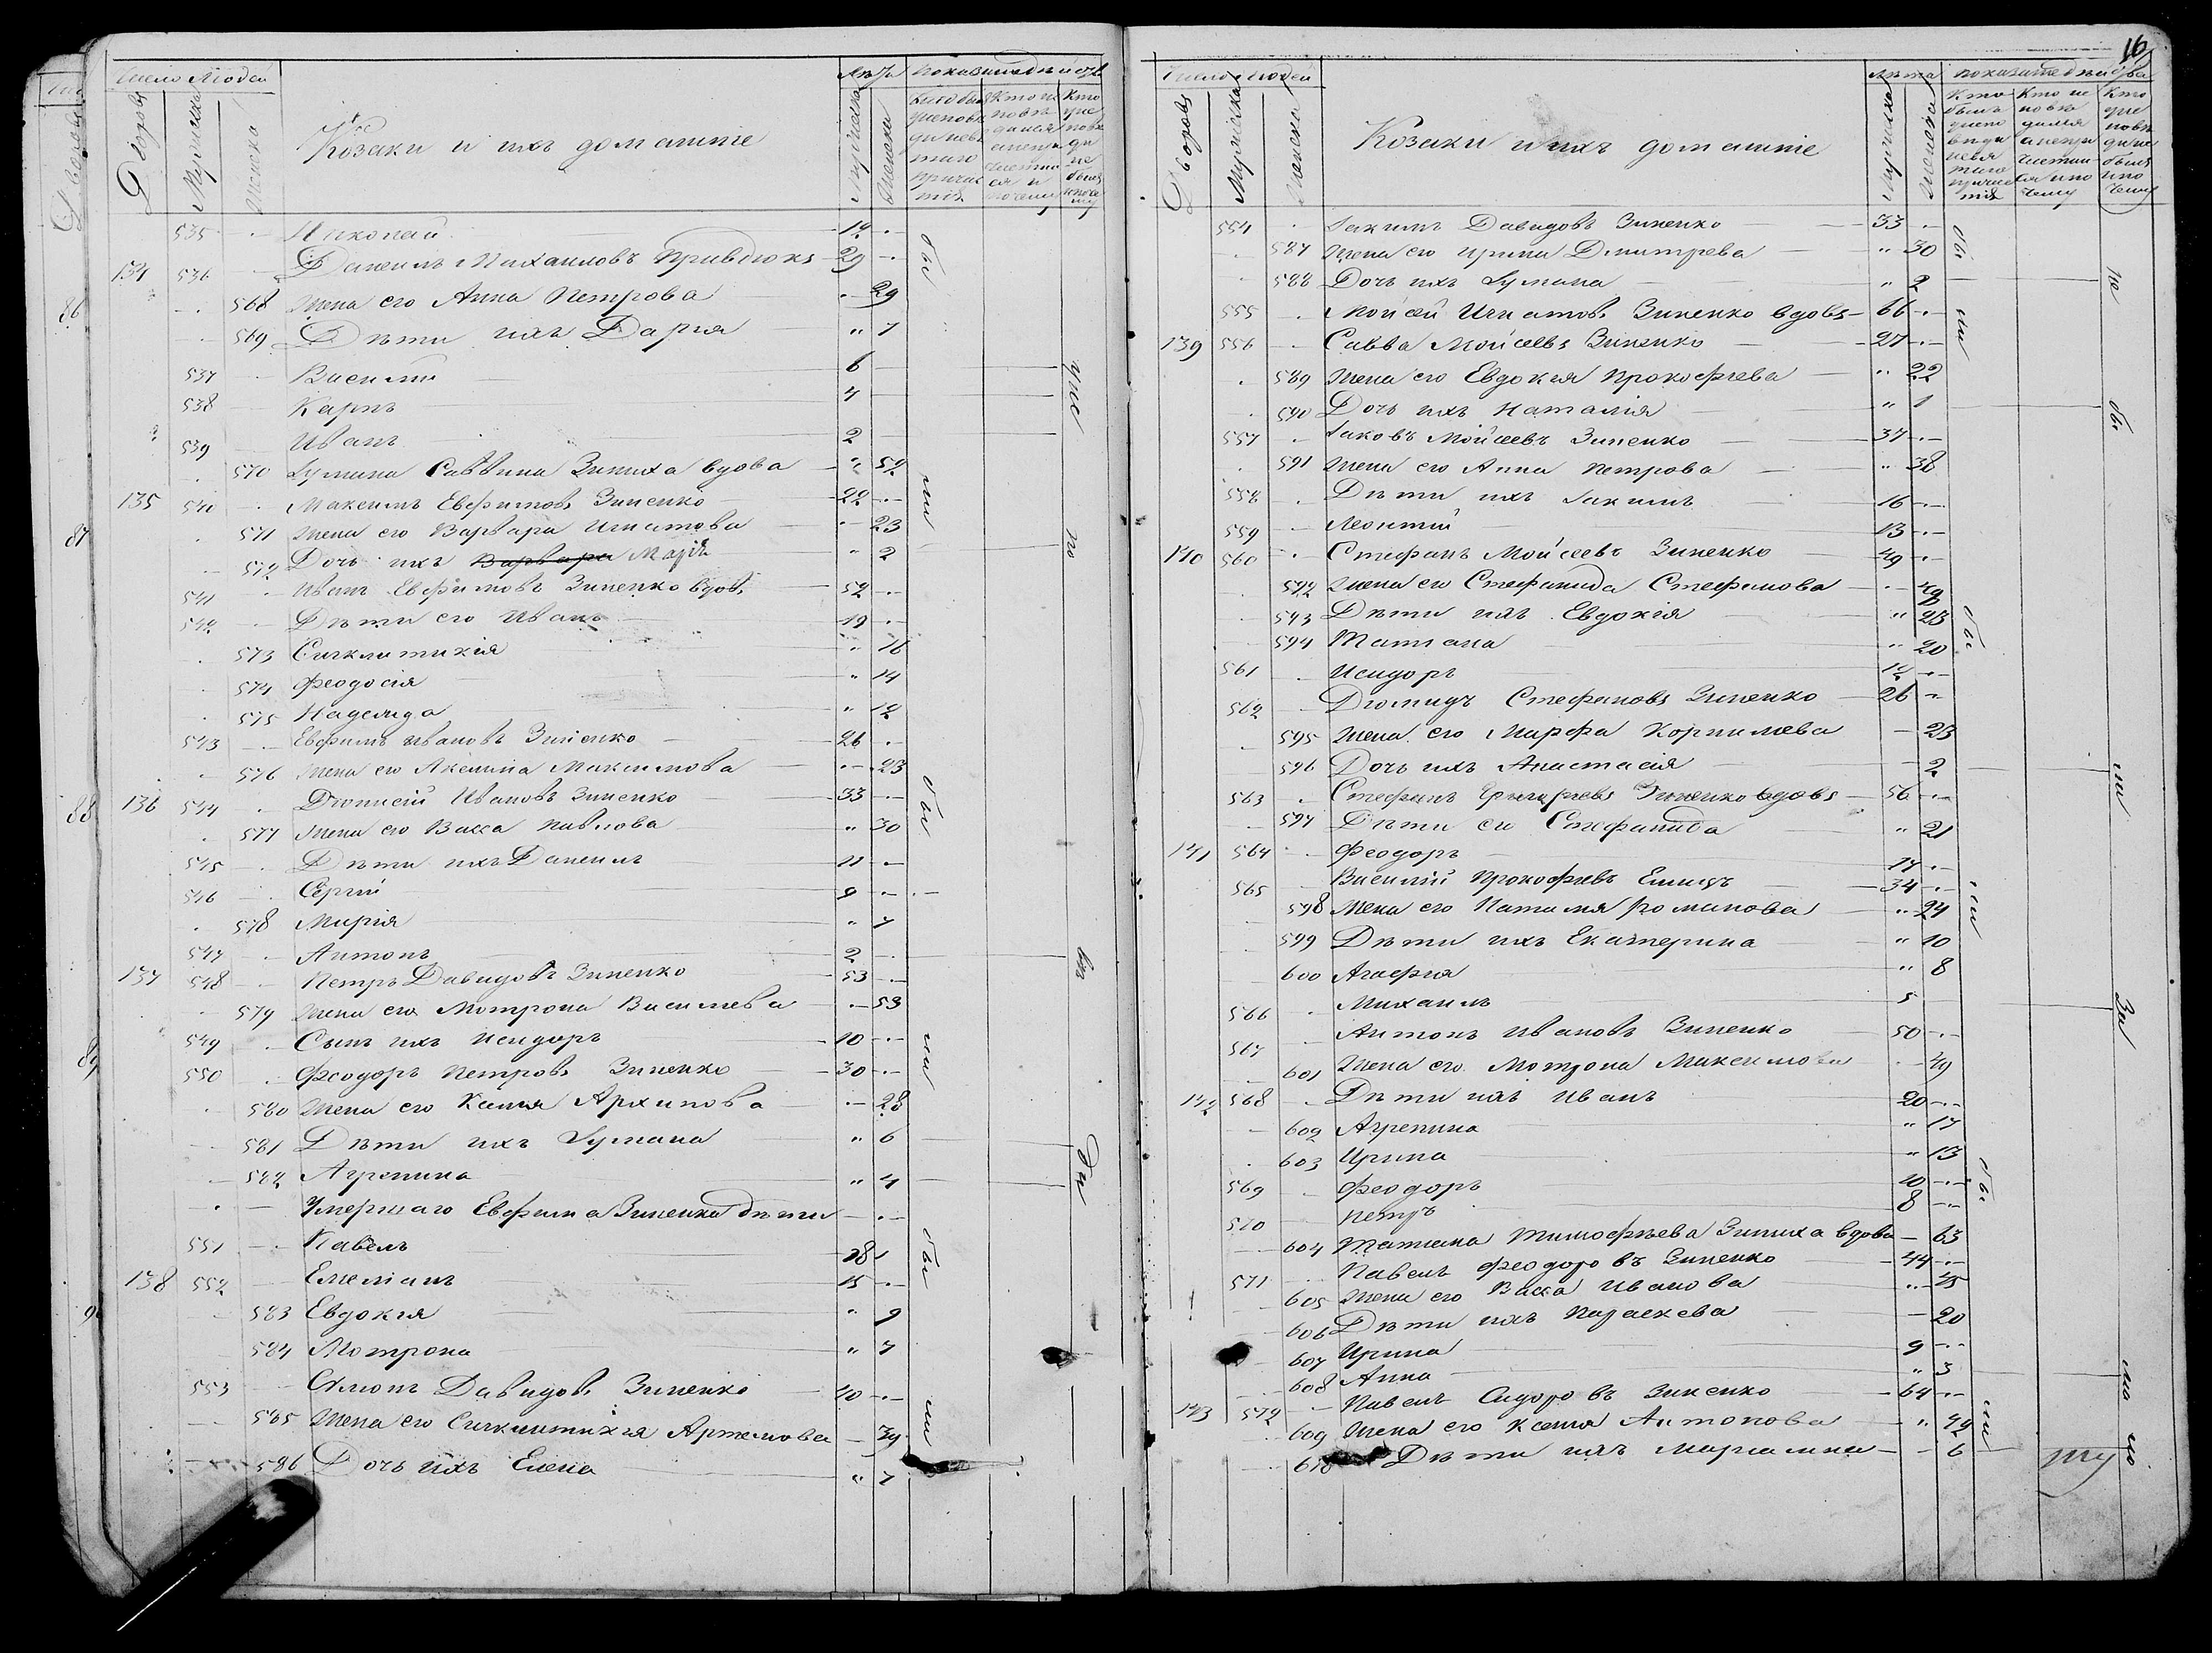 Число Людей
Лѣта
Показаніе дѣйства
Дворовъ
Мужеска
Женска
Козаки и ихъ домашніе
Мужеска
Женска
535 Николай 12
134 536 Даніилъ Михаиловъ Привдюкъ 29
568 Жена его Анна Петрова 29
569 Дѣти ихъ Дарія 7
537 Василій 6
538 Карпъ 4
539 Иванъ 2
570 Іуліана Саввина Зиниха вдова 52
135 540 Максимъ Евфимовъ Зиненко 22
571 Жена его Варвара Игнатова 23
572 Дочь ихъ Варвара Марія 2
541 Иванъ Евфимовъ Зиненко вдовъ 52
542 Дѣти его Иванъ 19
573 Сигклитикія 16
574 Феодосія 14
575 Надежда 12
543 Евфимъ Ивановъ Зиненко 26
576 Жена его Акилина Максимова 23
136 544 Діонисій Ивановъ Зиненко 33
577 Жена его Васса Павлова 30
545 Дѣти ихъ Даніилъ 11
546 Сергій 9
578 Марія 7
547 Антонъ 2
137 548 Петръ Давидовъ Зиненко 53
579 Жена его Мотрона Василіева 53
549 Сынъ ихъ Исидоръ 10
550 Феодоръ Петровъ Зиненко 30
580 Жена его Ксенія Архипова 28
581 Дѣти ихъ Іуліана 6
582 Агрепина 4
Умершаго Евфима Зиненка дѣти
551 Павелъ 18
138 552 Емеліанъ 15
583 Евдокія 9
584 Мотрона 7
553 Симонъ Давидовъ Зиненко 40
585 Жена его Сигклитикія Артемова 39
586 Дочь ихъ Елена 7
16
Число Людей
Лѣта
показаніе дѣйства
Дворовъ
Мужеска
Женска
Козаки и ихъ домашніе
Мужеска
Женска
554 Іакимъ Давидовъ Зиненко 33
587 Жена его Ирина Дмитрева 30
588 Дочь ихъ Іуліана 2
555 Мойсей Игнатовъ Зиненко вдовъ 66
139 556 Савва Мойсеевъ Зиненко 27
589 Жена его Евдокія Прокофіева 22
590 Дочь ихъ Наталія 1
557 Іаковъ Мойсеевъ Зиненко 37
591 Жена его Анна Петрова 38
558 Дѣти ихъ Іакимъ 16
559 Леонтій 13
140 560 Стефанъ Мойсеевъ Зиненко 49
592 Жена его Стефанида Стефанова 49
593 Дѣти ихъ Евдокія 23
594 Татіана 20
561 Исидоръ 12
562 Діомидъ Стефановъ Зиненко 26
595 Жена его Марфа Корниліева 23
596 Дочь ихъ Анастасія 2
563 Стефанъ Григоріевъ Зиненко вдовъ 56
597 Дѣти его Стефанида 21
141 564 Феодоръ 17
565 Василій Прокофіевъ 34
598 Жена его Наталія Романова 24
599 Дѣти ихъ Екатерина 10
600 Агафія 8
566 Михаилъ 5
567 Антонъ Ивановъ Зиненко 50
601 Жена его Мотрона Максимова 49
142 568 Дѣти ихъ Иванъ 20
602 Агрепина 17
603 Ирина 13
569 Феодоръ 10
570 Петръ 8
604 Татіана Тимофѣева Зиниха вдова 63
571 Павелъ Феодоровъ Зиненко 44
605 Жена его Васса Иванова 45
606 Дѣти ихъ Параскева 20
607 Ирина 9
608 Анна 3
143 572 Павелъ Сидоровъ Зиненко 64
609 Жена его Ксенія Антонова 42
610 Дѣти ихъ Маріамна 6